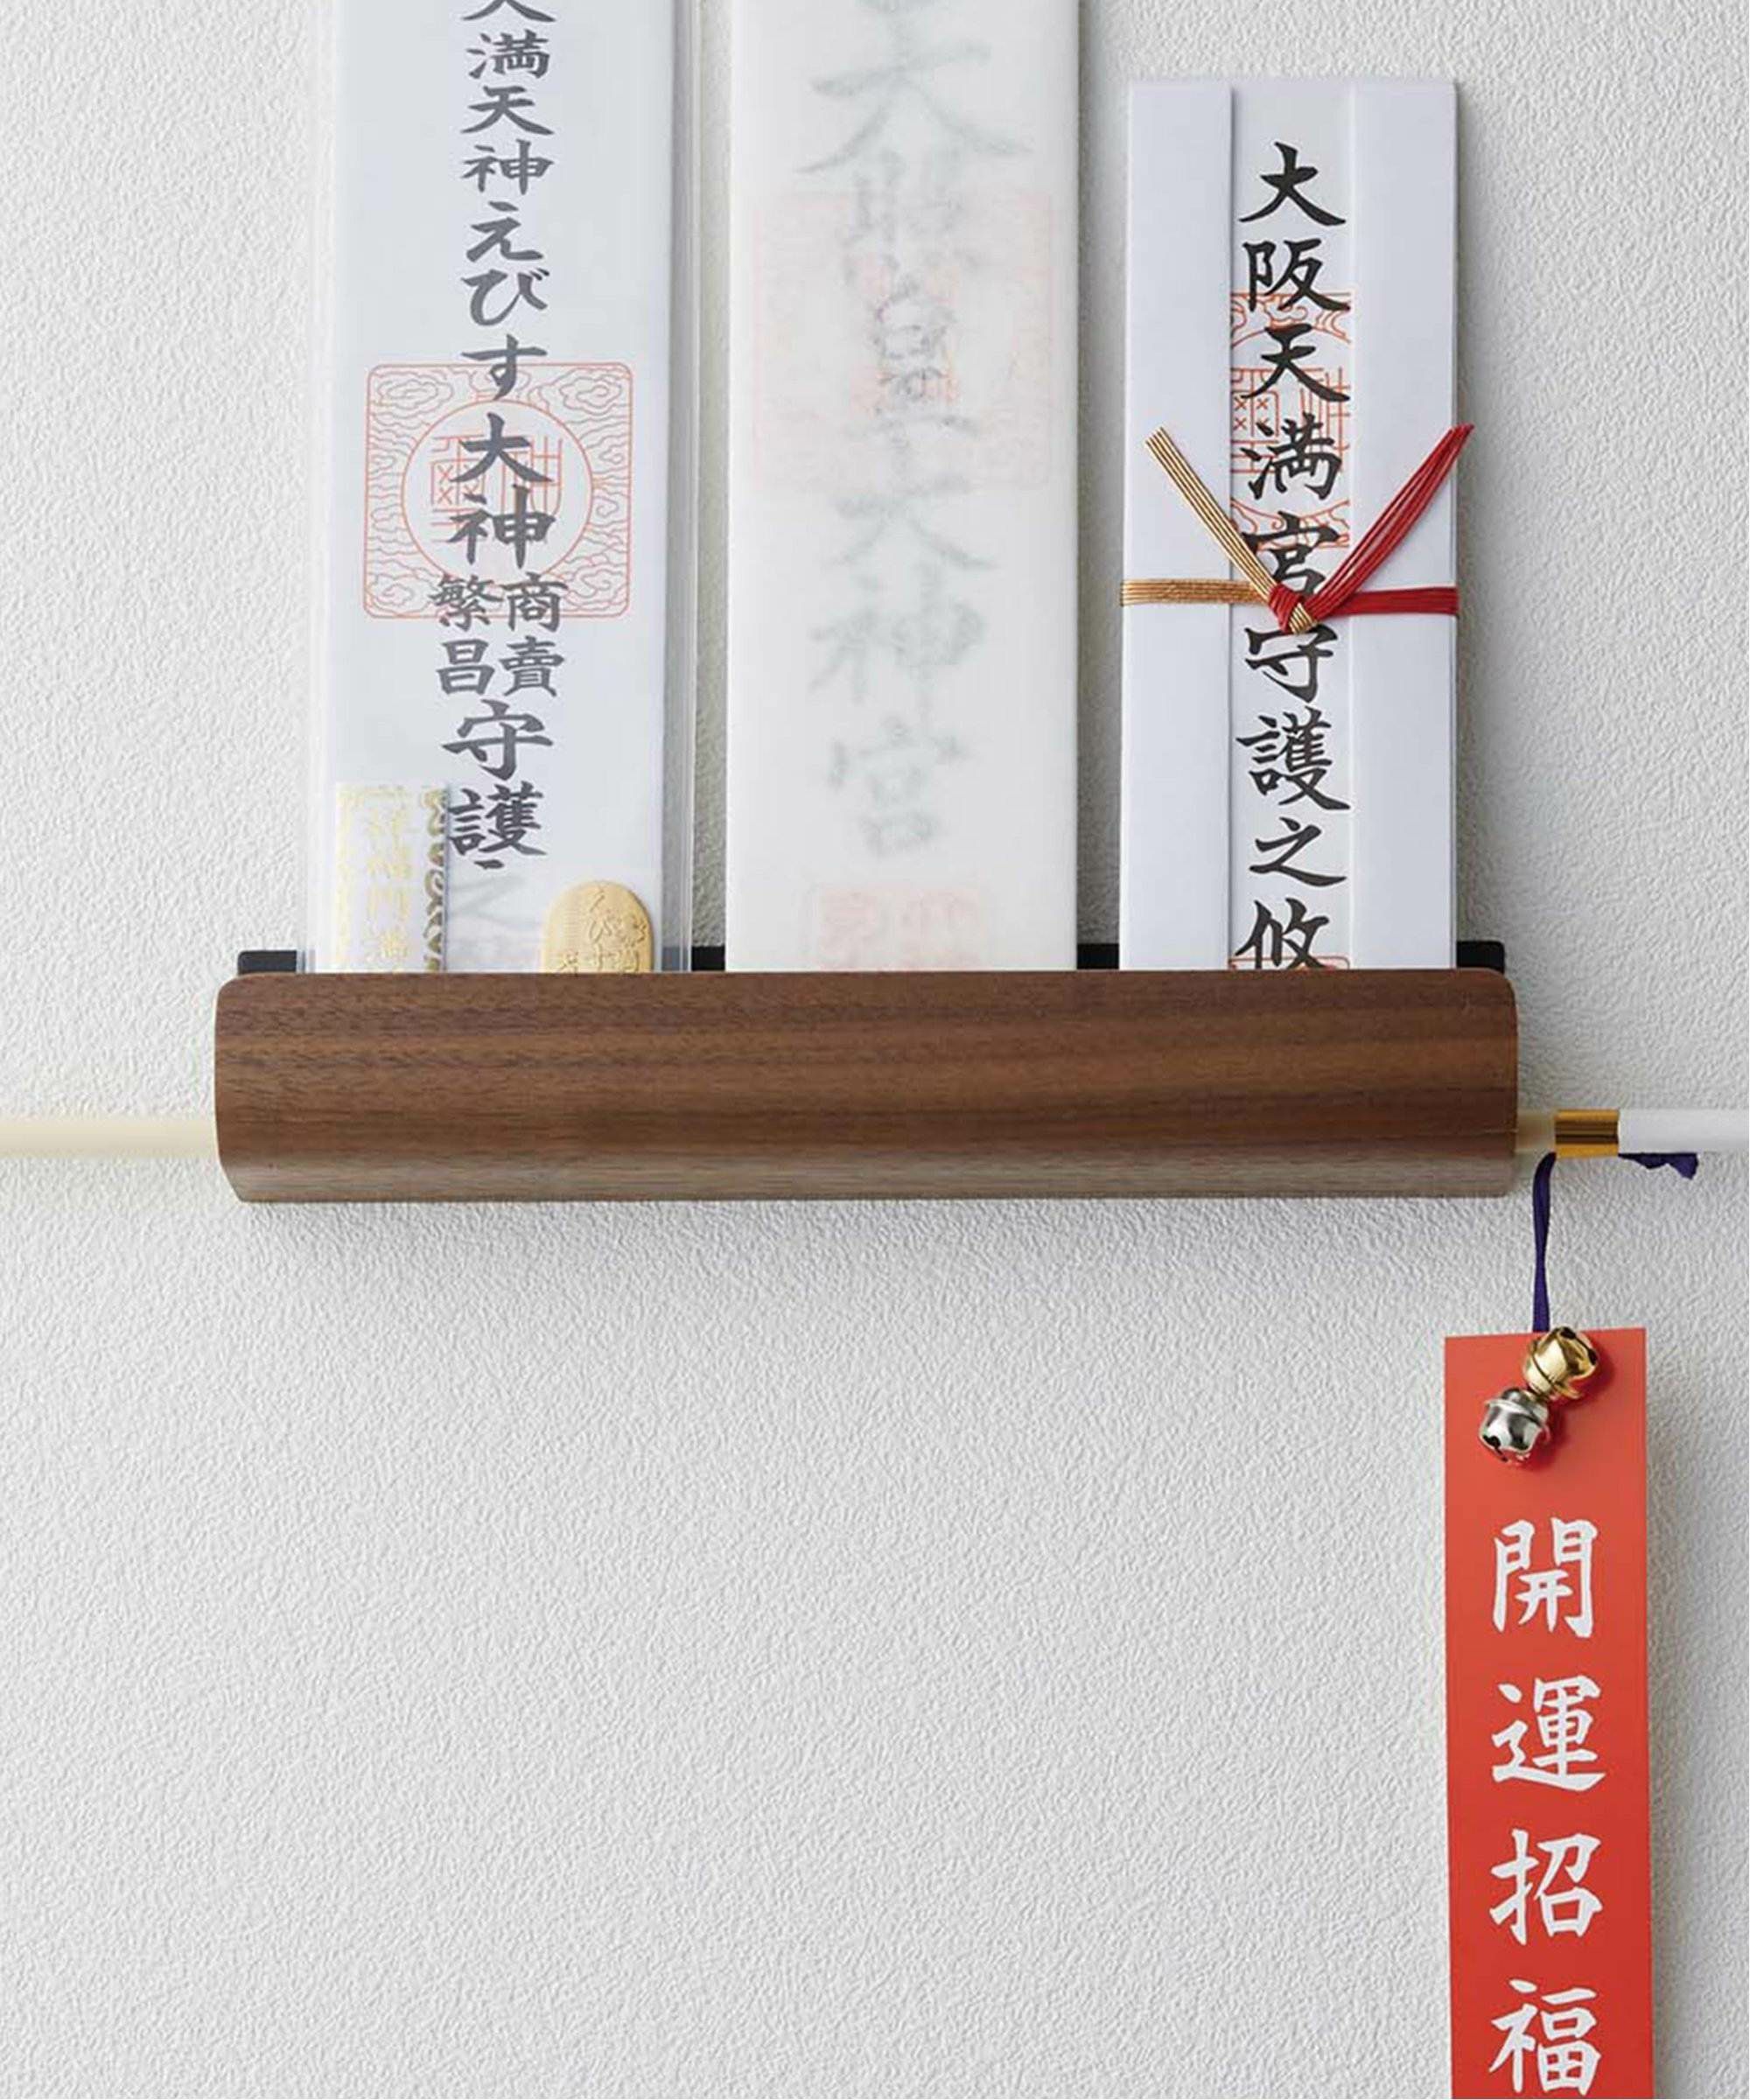 満天神えびす大神
商賣
繁昌
守護
天照皇大神宮
大阪天満宮守護之攸
開運招福